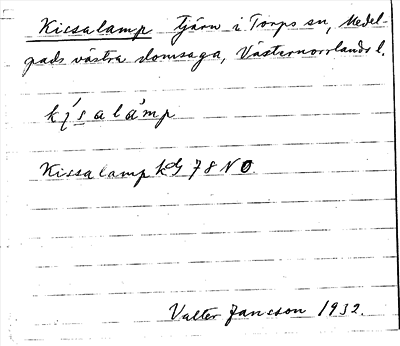 Kissalamp tjärn i Torps sn, Medel-
pads västra domsaga, Västernorrlands l.
Kissalamp kG 78 NO
Valter Jansson 1932.